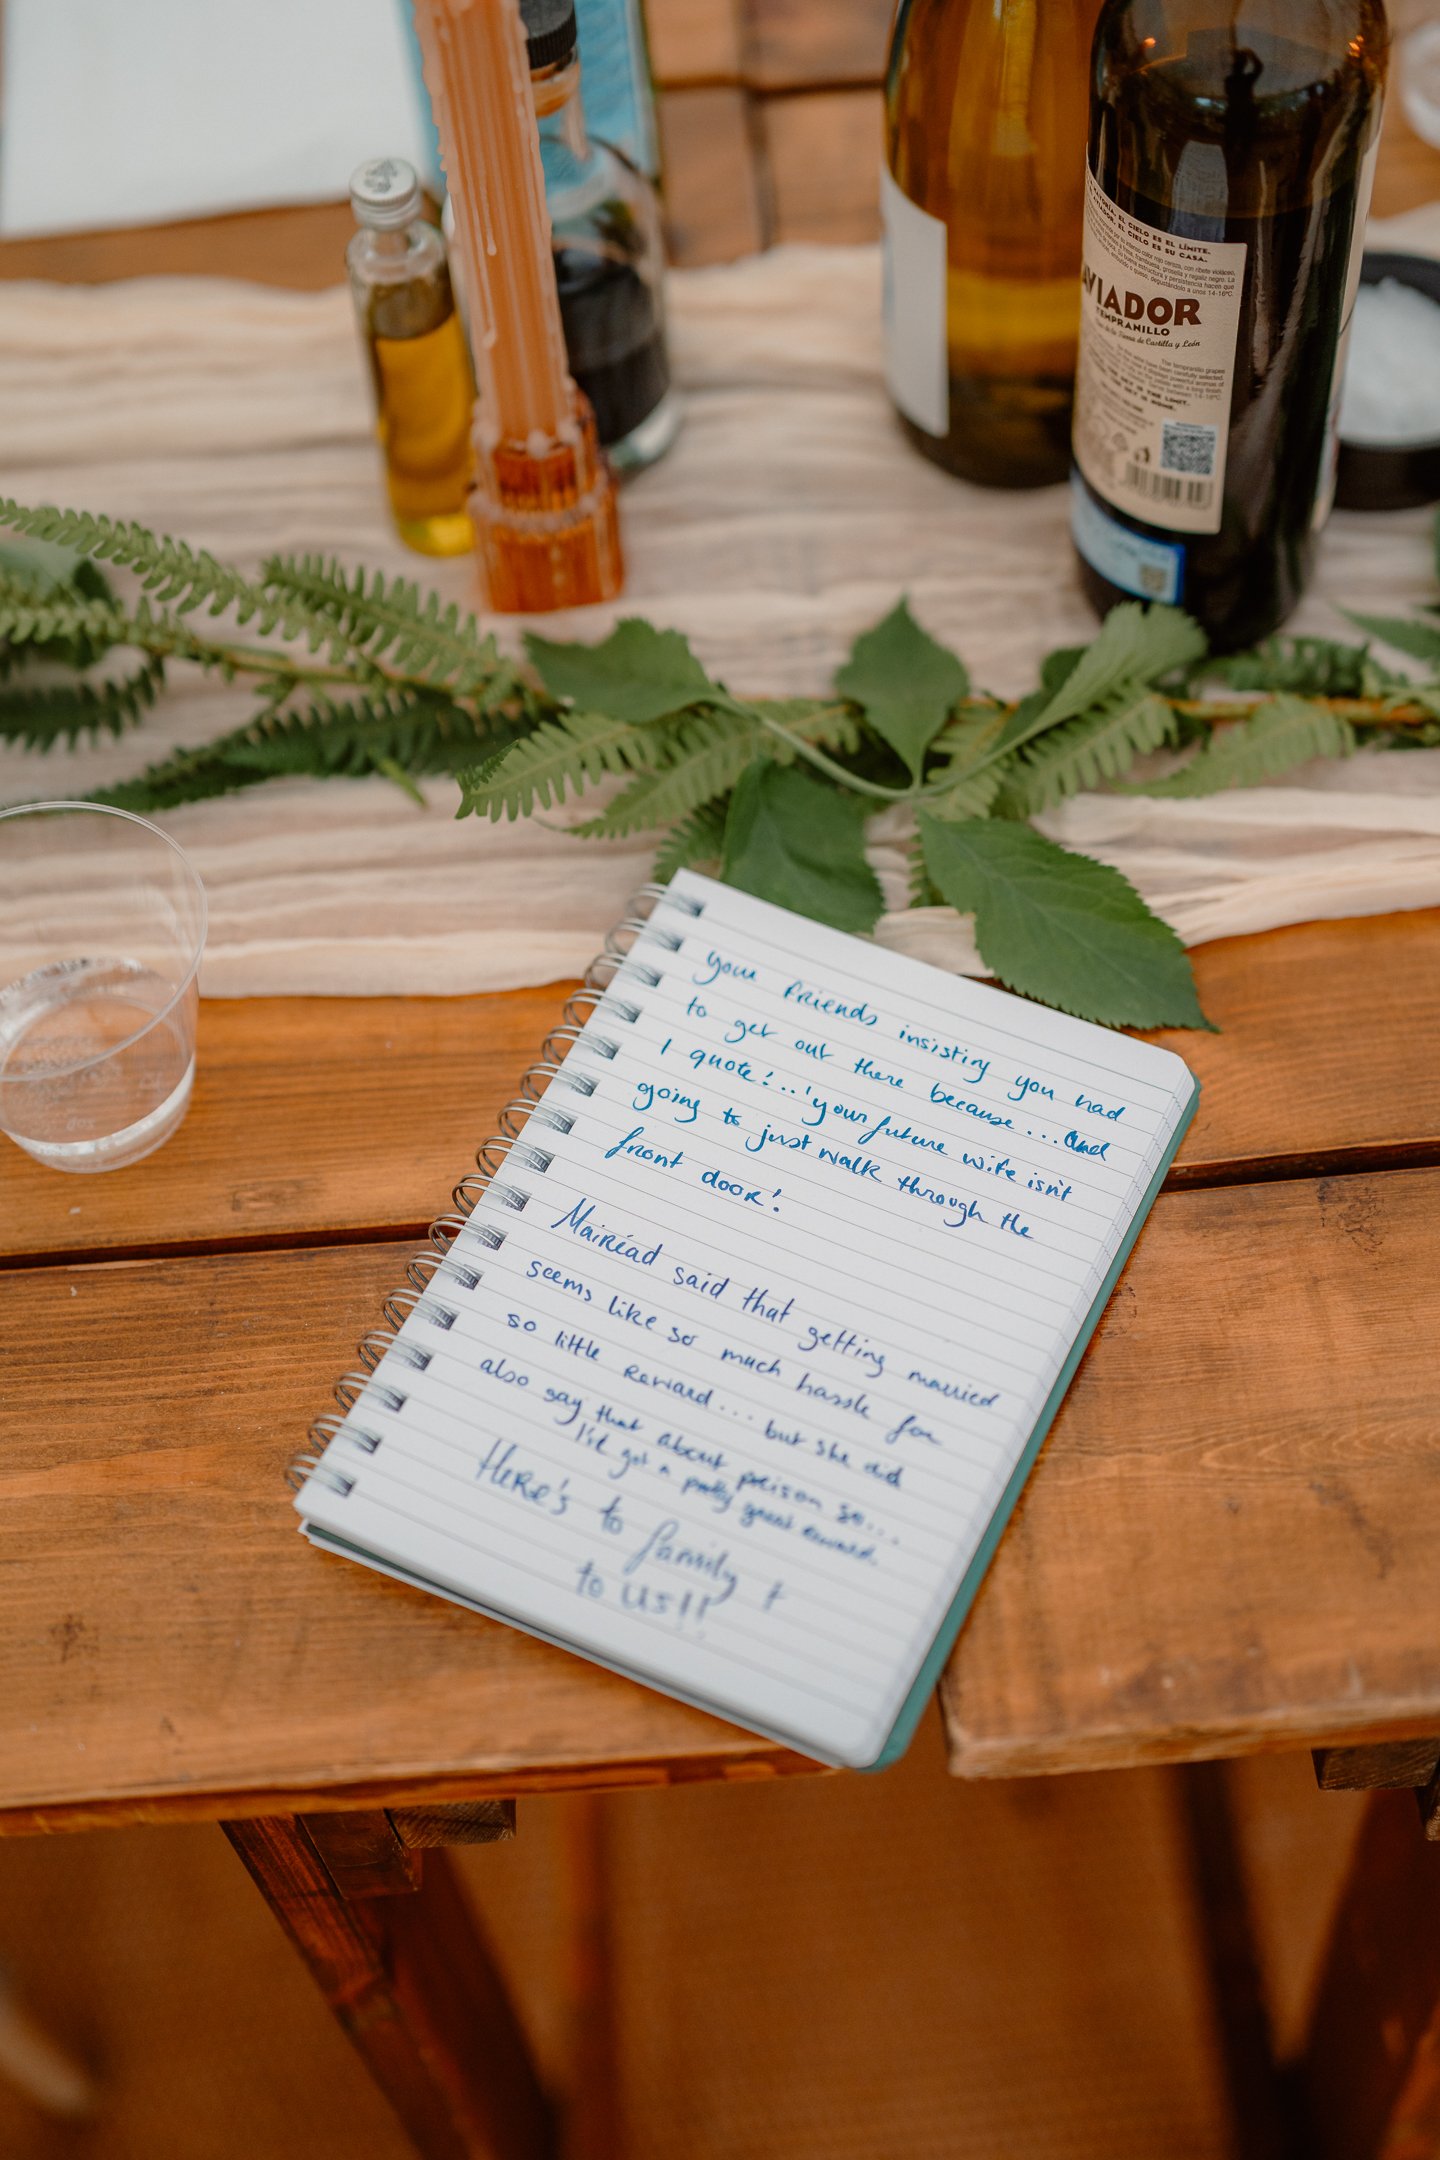 EL CIELO ES EL LÍMITE.
AVIADOR. EL CIELO ES SU CASA.
AVIADOR
TEMPRANILLO
de la Tierra de Castilla y León
your friends insisting you had
to get out there because... and
I quote!..'your future wife isn't
going to just walk through the
front door!
Mairéad said that getting married
seems like so much hassle for
so little reward... but she did
also say that about prison so...
I've got a pretty great reward.
Here's to family +
to us!!